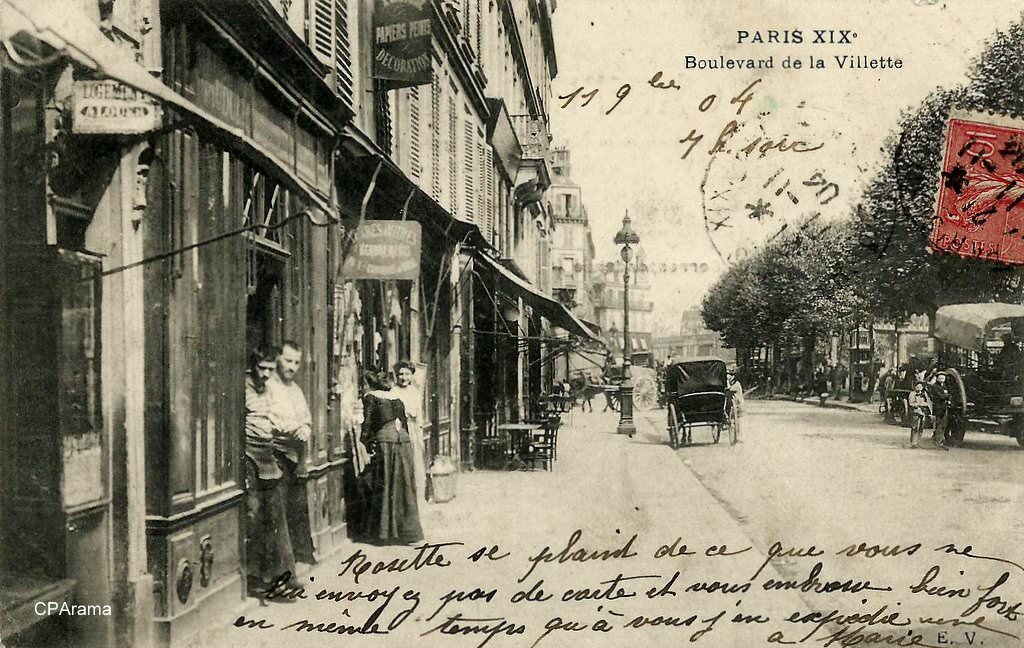 PARIS XIXe
Boulevard de la Villette
PAPIERS PEINTS
DECORATION
LOGEMENTS
A LOUER
04
7h. soir
POSTES
Rosette se plaind de ce que vous ne
lui envoyez pas de carte et vous embrasse bien fort
en même temps qu'à vous j'en expédie une
à Marie
E. V.
CPArama